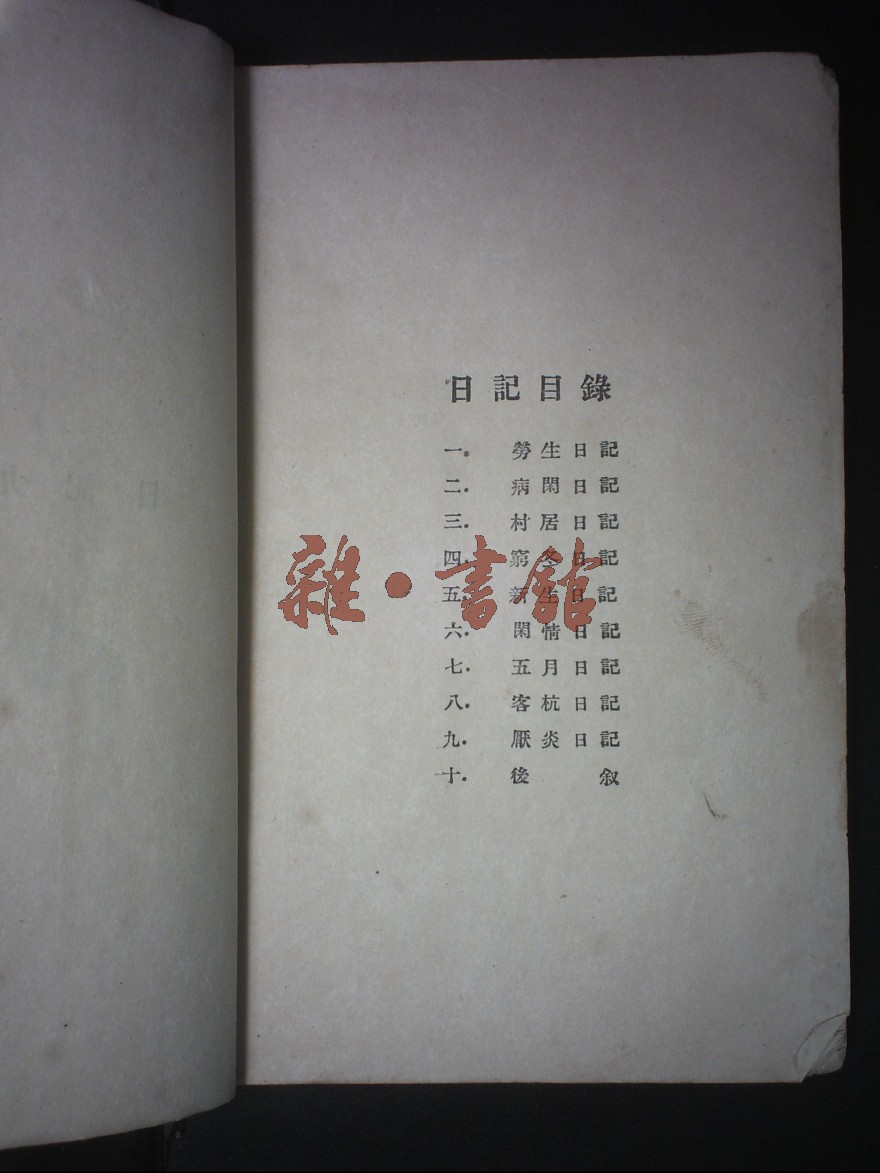 日記目錄
一. 勞生日記
二. 病閑日記
三. 村居日記
四. 窮冬日記
五. 新生日記
六. 閑情日記
七. 五月日記
八. 客杭日記
九. 厭炎日記
十. 後叙
雜·書館